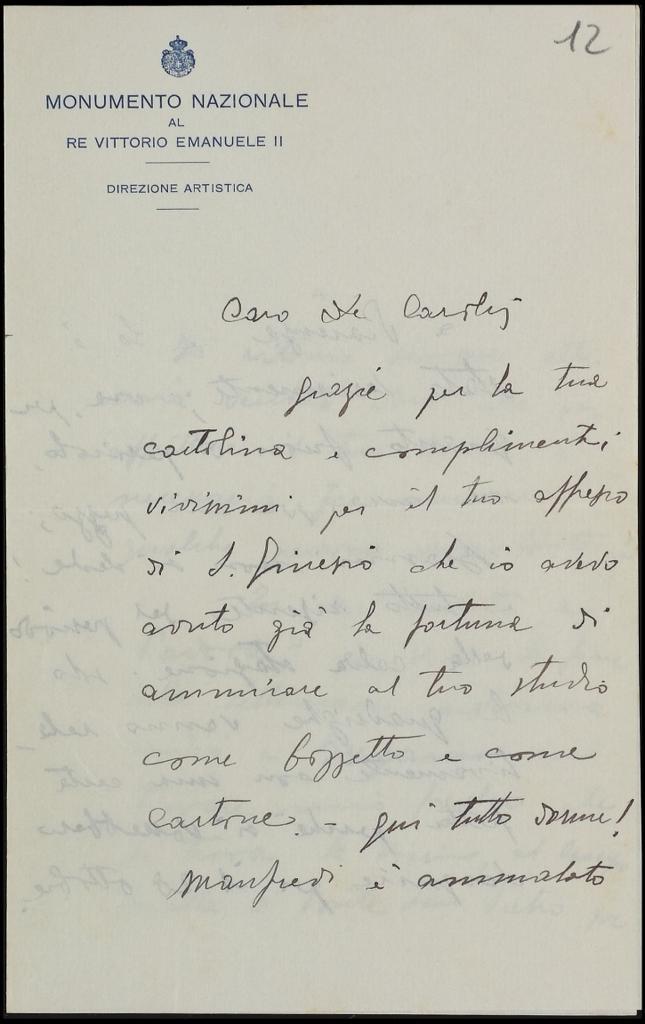 12
MONUMENTO NAZIONALE
AL
RE VITTORIO EMANUELE II
DIREZIONE ARTISTICA
Caro De Carolis
grazie per la tua
cartolina e complimenti
vivissimi per il tuo affresco
di S. Ginesio che io avevo
avuto già la fortuna di
ammirare al tuo studio
come bozzetto e come
cartone. - Qui tutto dorme!
Manfredi è ammalato